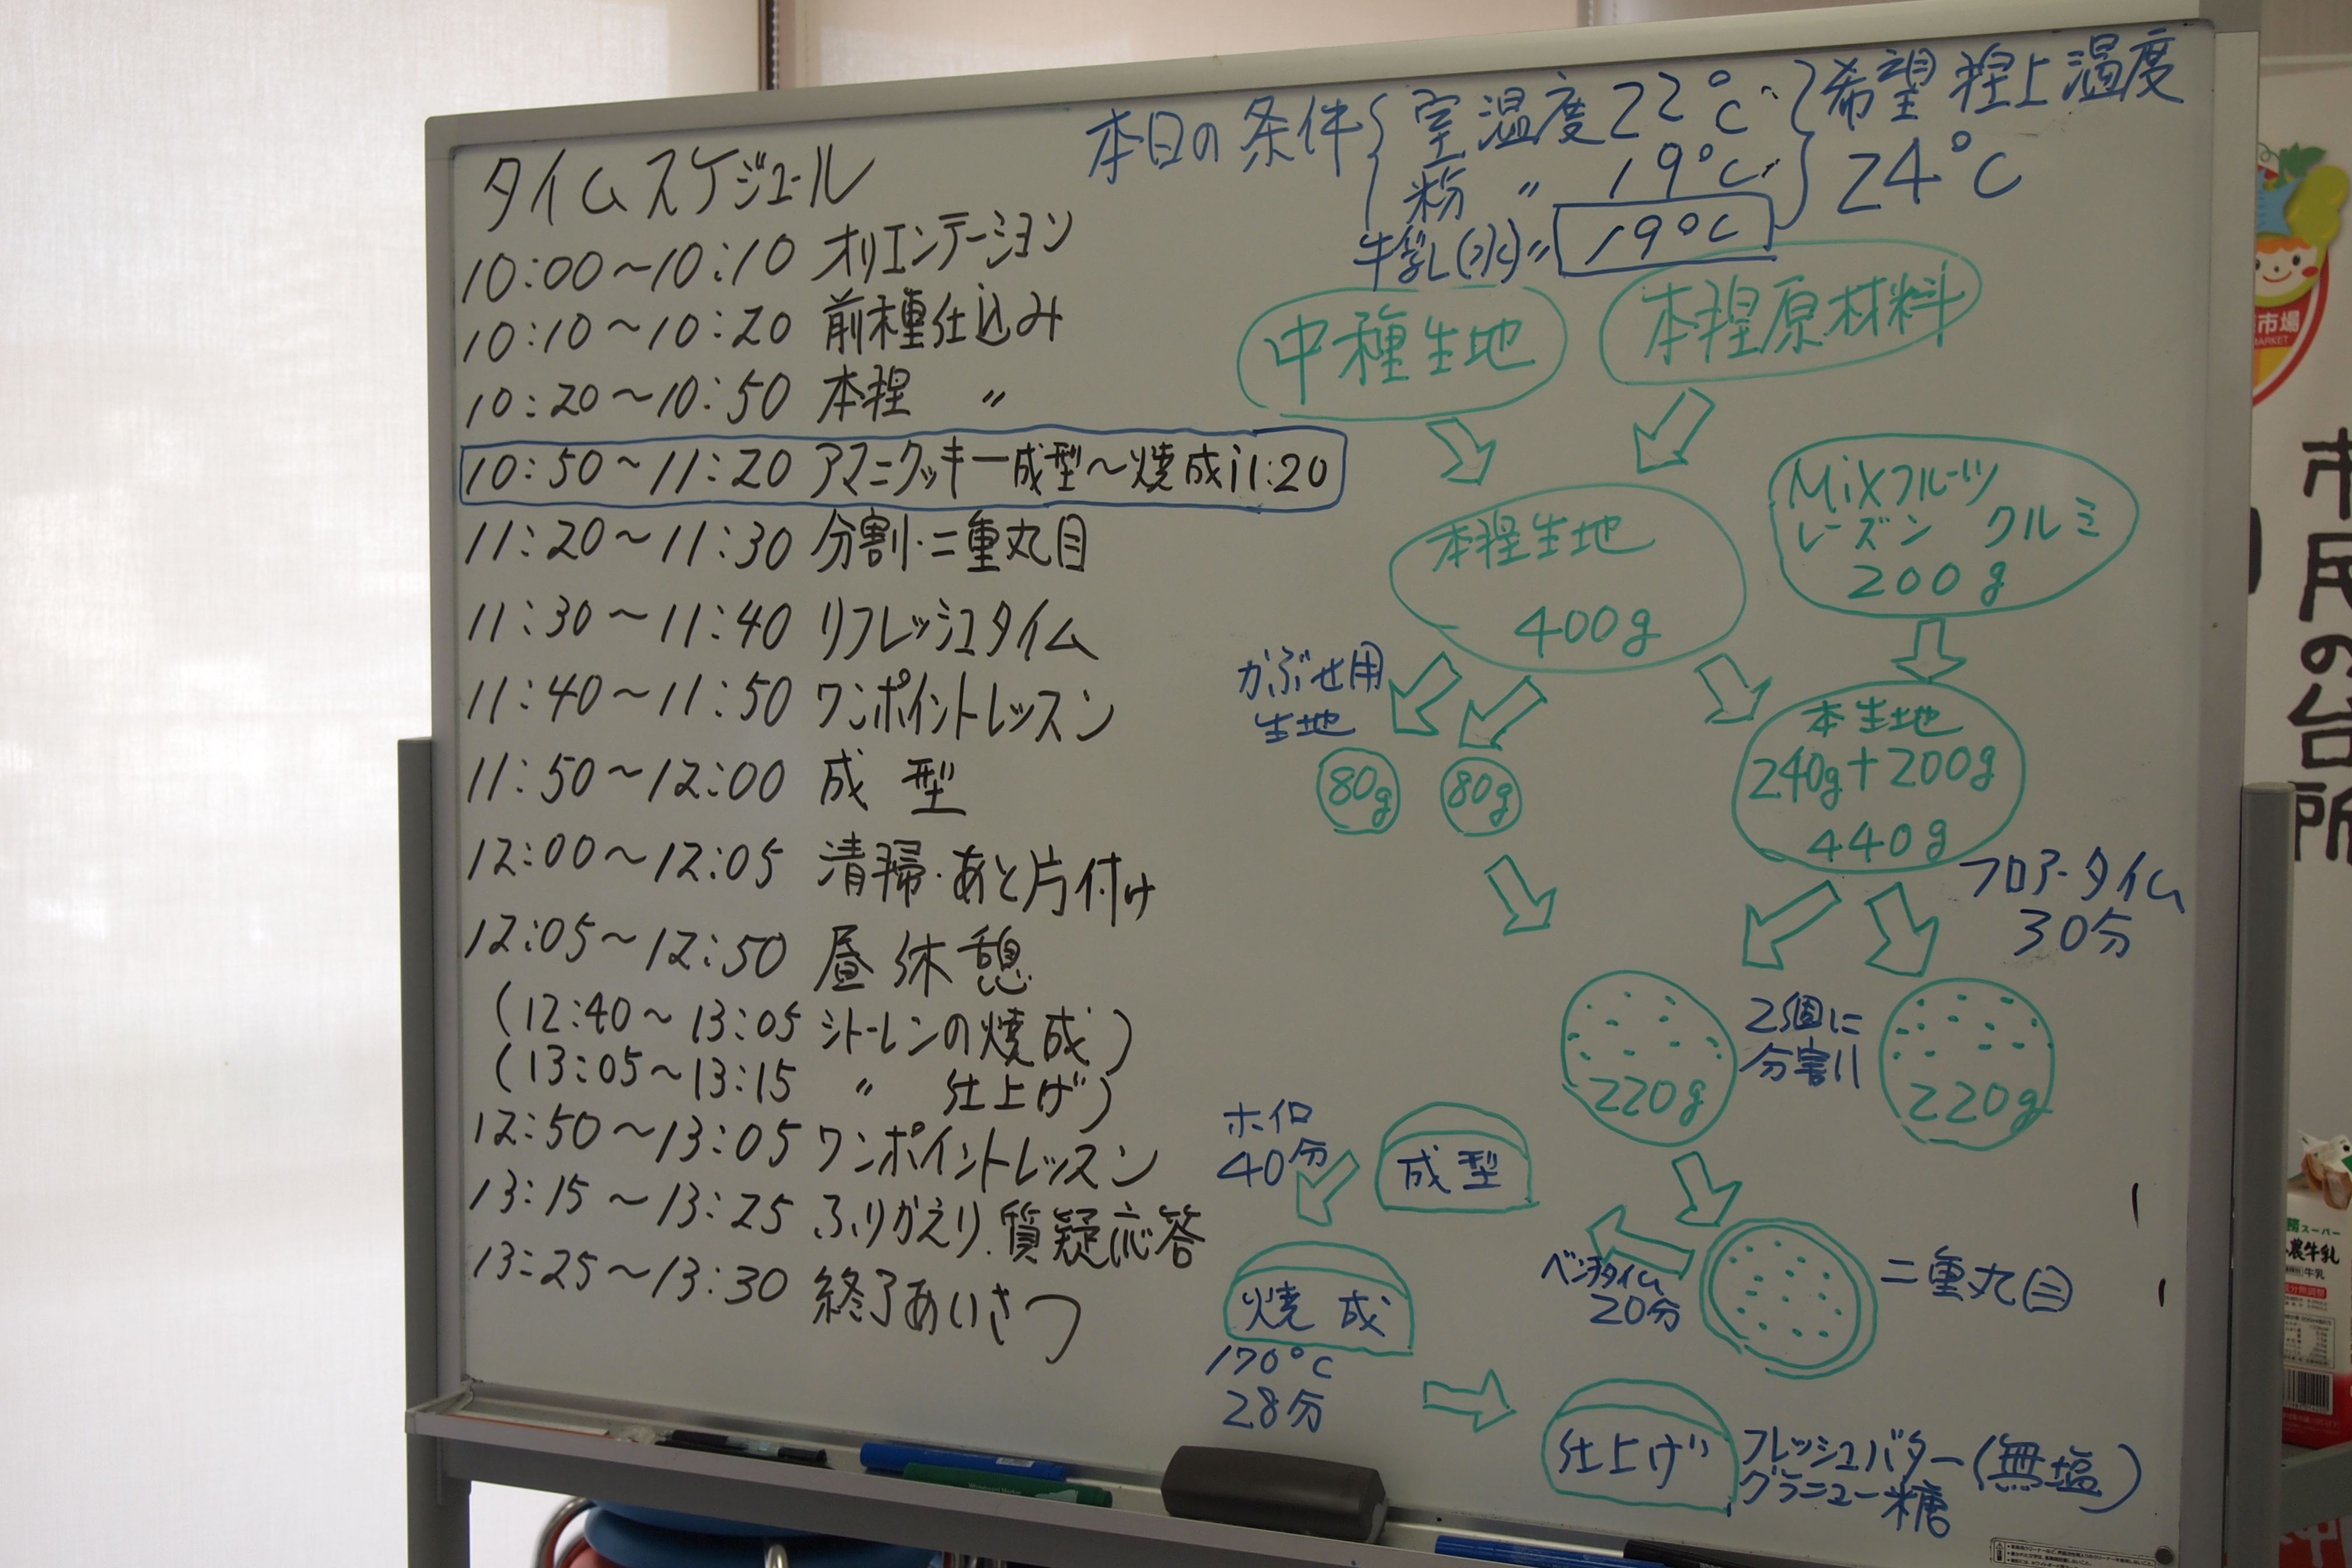 タイムスケジュール
10:00～10:10 オリエンテーション
10:10～10:20 前種仕込み
10:20～10:50 本捏 〃
10:50～11:20 アマニクッキー成型～焼成11:20
11:20～11:30 分割・二重丸目
11:30～11:40 リフレッシュタイム
11:40～11:50 ワンポイントレッスン
11:50～12:00 成型
12:00～12:05 清掃・あと片付け
12:05～12:50 昼休憩
(12:40～13:05 シトーレンの焼成)
(13:05～13:15 〃 仕上げ)
12:50～13:05 ワンポイントレッスン
13:15～13:25 ふりかえり.質疑応答
13:25～13:30 終了あいさつ
本日の条件
室温度22℃
粉 〃 19℃
牛乳(水)〃 19℃
希望捏上温度
24℃
中種生地
本捏原材料
本捏生地
400g
Mixフルーツ
レーズン クルミ
200g
かぶせ用
生地
80g
80g
本生地
240g+200g
440g
フロアータイム
30分
220g
2個に
分割
220g
二重丸目
ベンチタイム
20分
成型
ホイロ
40分
焼成
170℃
28分
仕上げ
フレッシュバター(無塩)
グラニュー糖
市場
MARKET
市民の台所
スーパー
濃牛乳
牛乳